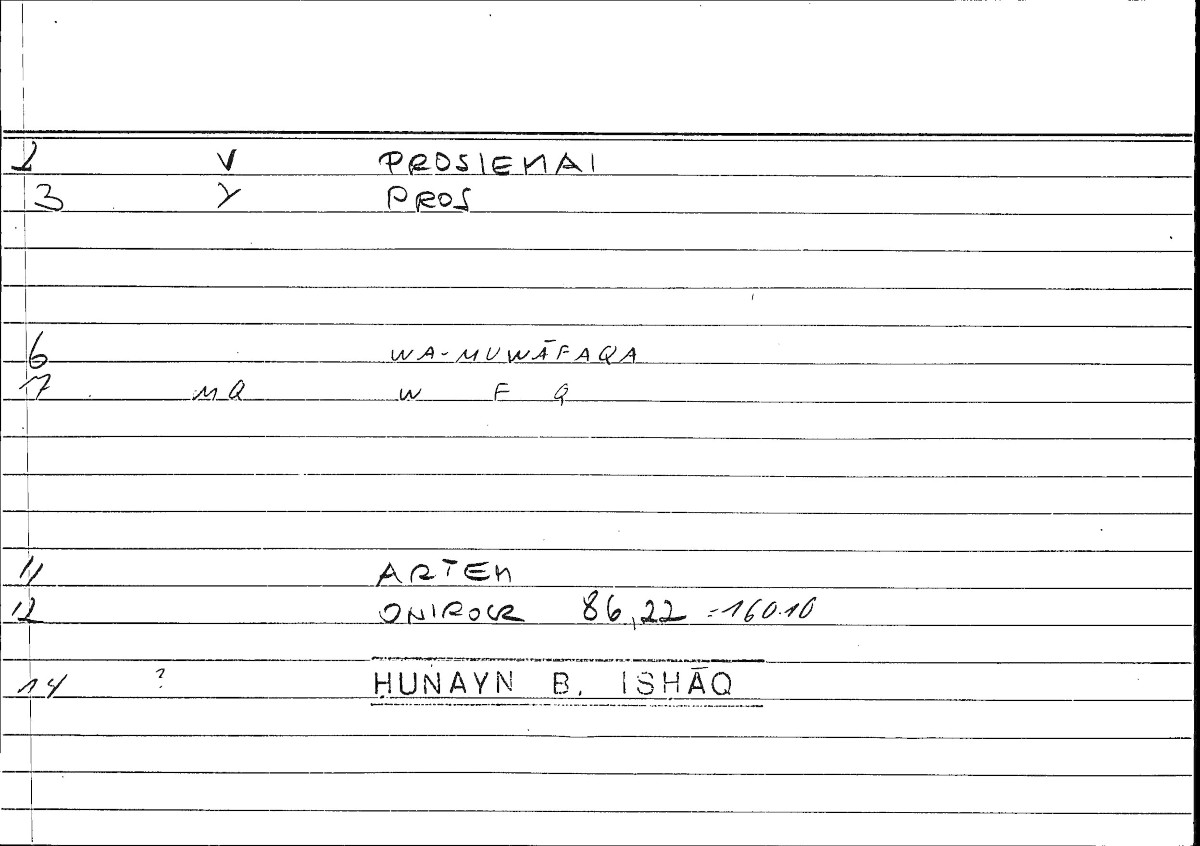 2 V PROSIENAI
3 Y PROS
6 WA-MUWĀFAQA
7 MQ W F Q
11 ARTEM
12 ONIROCR 86,22 =160.10
14 ? ḤUNAYN B. ISḤĀQ